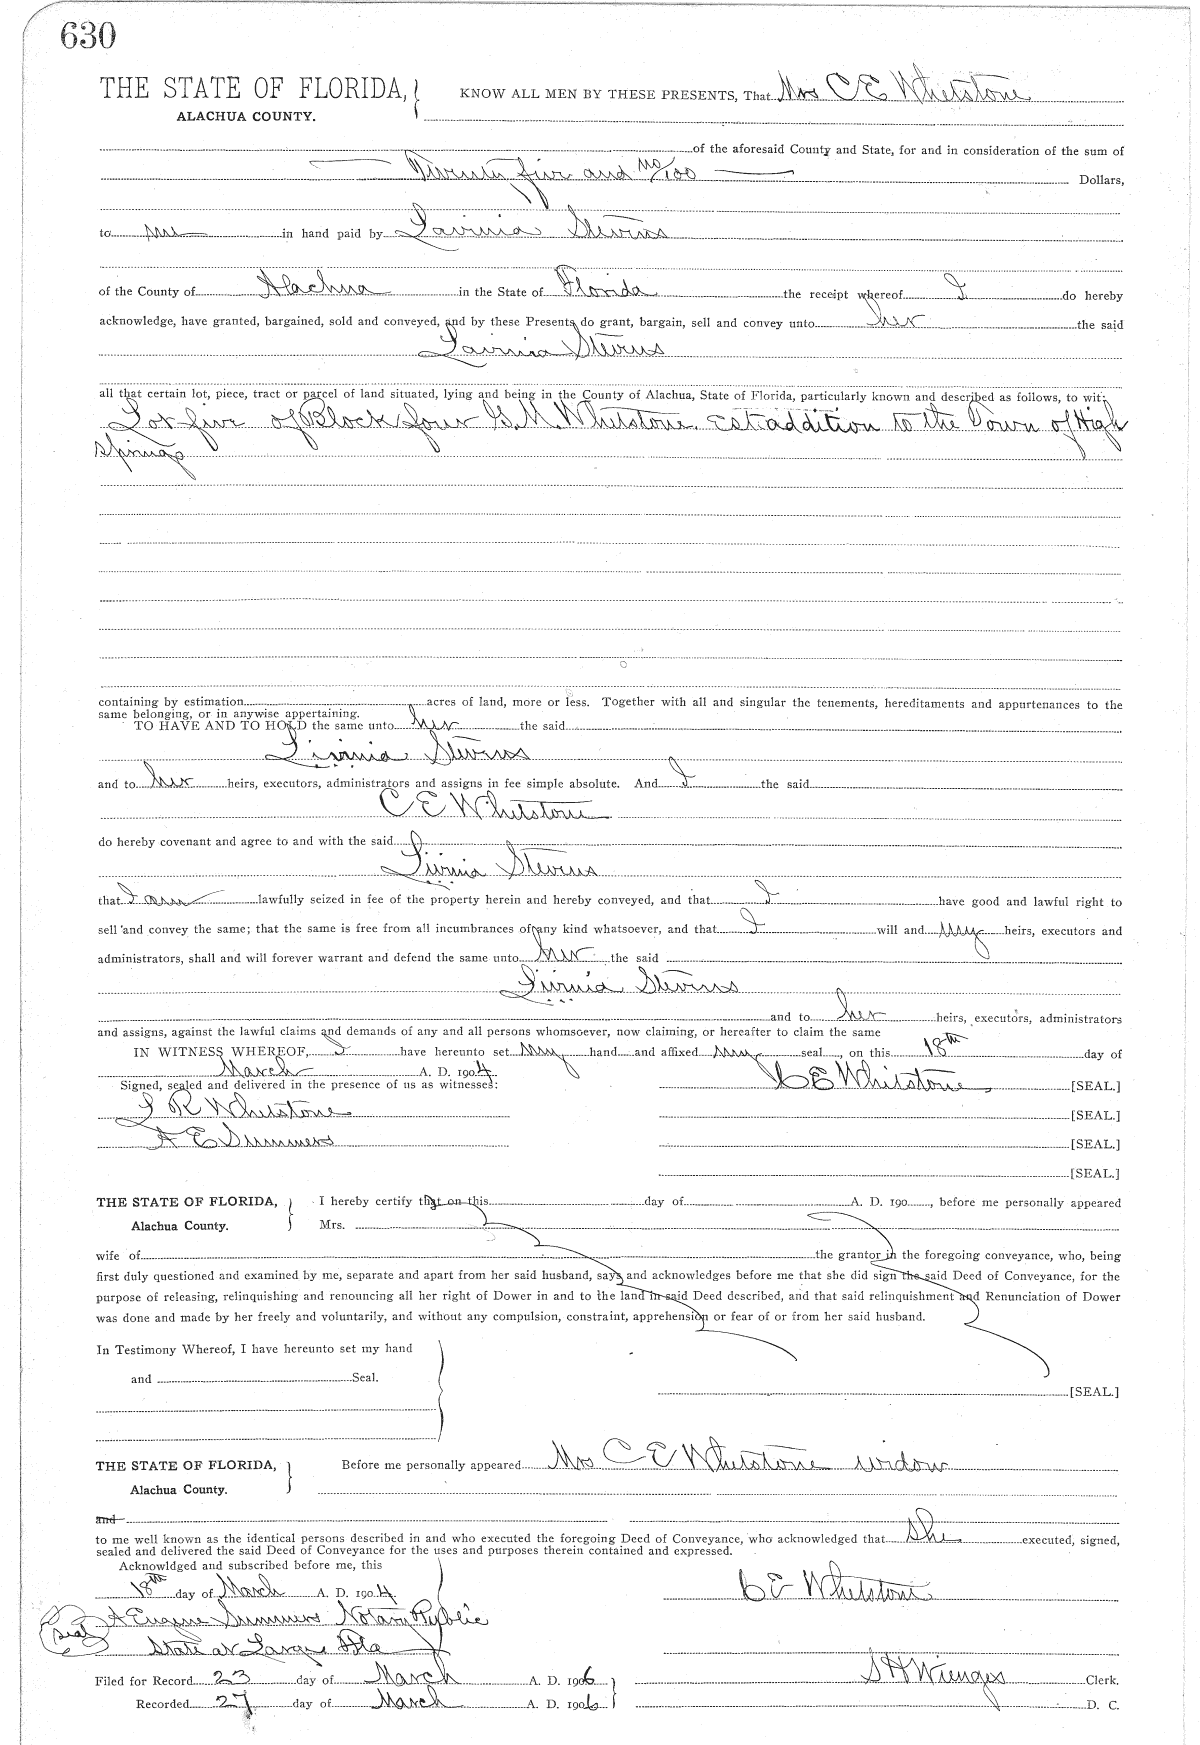 630
THE STATE OF FLORIDA, KNOW ALL MEN BY THESE PRESENTS, That Mrs C E Whetstone
ALACHUA COUNTY.
of the aforesaid County and State, for and in consideration of the sum of
Twenty five and no/100 Dollars,
to me in hand paid by Lavinia Stevens
of the County of Alachua in the State of Florida the receipt whereof I do hereby
acknowledge, have granted, bargained, sold and conveyed, and by these Presents do grant, bargain, sell and convey unto her the said
Lavinia Stevens
all that certain lot, piece, tract or parcel of land situated, lying and being in the County of Alachua, State of Florida, particularly known and described as follows, to wit:
Lot five of Block four G. M. Whetstone Est addition to the Town of High
Springs
containing by estimation acres of land, more or less. Together with all and singular the tenements, hereditaments and appurtenances to the
same belonging, or in anywise appertaining.
TO HAVE AND TO HOLD the same unto her the said
Livinia Stevens
and to her heirs, executors, administrators and assigns in fee simple absolute. And I the said
C E Whetstone
do hereby covenant and agree to and with the said
Livinia Stevens
that I am lawfully seized in fee of the property herein and hereby conveyed, and that I have good and lawful right to
sell and convey the same; that the same is free from all incumbrances of any kind whatsoever, and that I will and my heirs, executors and
administrators, shall and will forever warrant and defend the same unto her the said
Livinia Stevens
and to her heirs, executors, administrators
and assigns, against the lawful claims and demands of any and all persons whomsoever, now claiming, or hereafter to claim the same
IN WITNESS WHEREOF, I have hereunto set my hand and affixed my seal, on this 18th day of
March A. D. 1904.
Signed, sealed and delivered in the presence of us as witnesses: C E Whetstone [SEAL.]
J R Whetstone [SEAL.]
A E Summers [SEAL.]
[SEAL.]
THE STATE OF FLORIDA, I hereby certify that on this day of A. D. 190, before me personally appeared
Alachua County. Mrs.
wife of the grantor in the foregoing conveyance, who, being
first duly questioned and examined by me, separate and apart from her said husband, says and acknowledges before me that she did sign the said Deed of Conveyance, for the
purpose of releasing, relinquishing and renouncing all her right of Dower in and to the land in said Deed described, and that said relinquishment and Renunciation of Dower
was done and made by her freely and voluntarily, and without any compulsion, constraint, apprehension or fear of or from her said husband.
In Testimony Whereof, I have hereunto set my hand
and Seal.
[SEAL.]
THE STATE OF FLORIDA, Before me personally appeared Mrs C E Whetstone widow
Alachua County.
and
to me well known as the identical persons described in and who executed the foregoing Deed of Conveyance, who acknowledged that she executed, signed,
sealed and delivered the said Deed of Conveyance for the uses and purposes therein contained and expressed.
Acknowldged and subscribed before me, this
18th day of March A. D. 1904. C E Whetstone
Seal A Eugene Summers Notary Public
State at Large Fla
Filed for Record 23 day of March A. D. 1906 S H Wienges Clerk.
Recorded 27 day of March A. D. 1906 D. C.